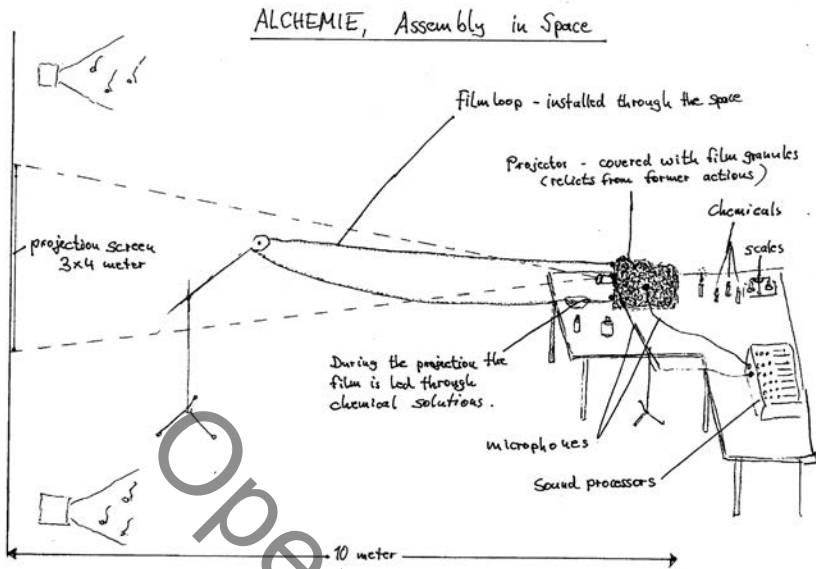 ALCHEMIE, Assembly in Space
Filmloop - installed through the space
Projector - covered with film granules
(relicts from former actions)
Chemicals
scales
projection screen
3x4 meter
During the projection the
film is led through
chemical solutions.
microphones
Sound processors
10 meter
Ope